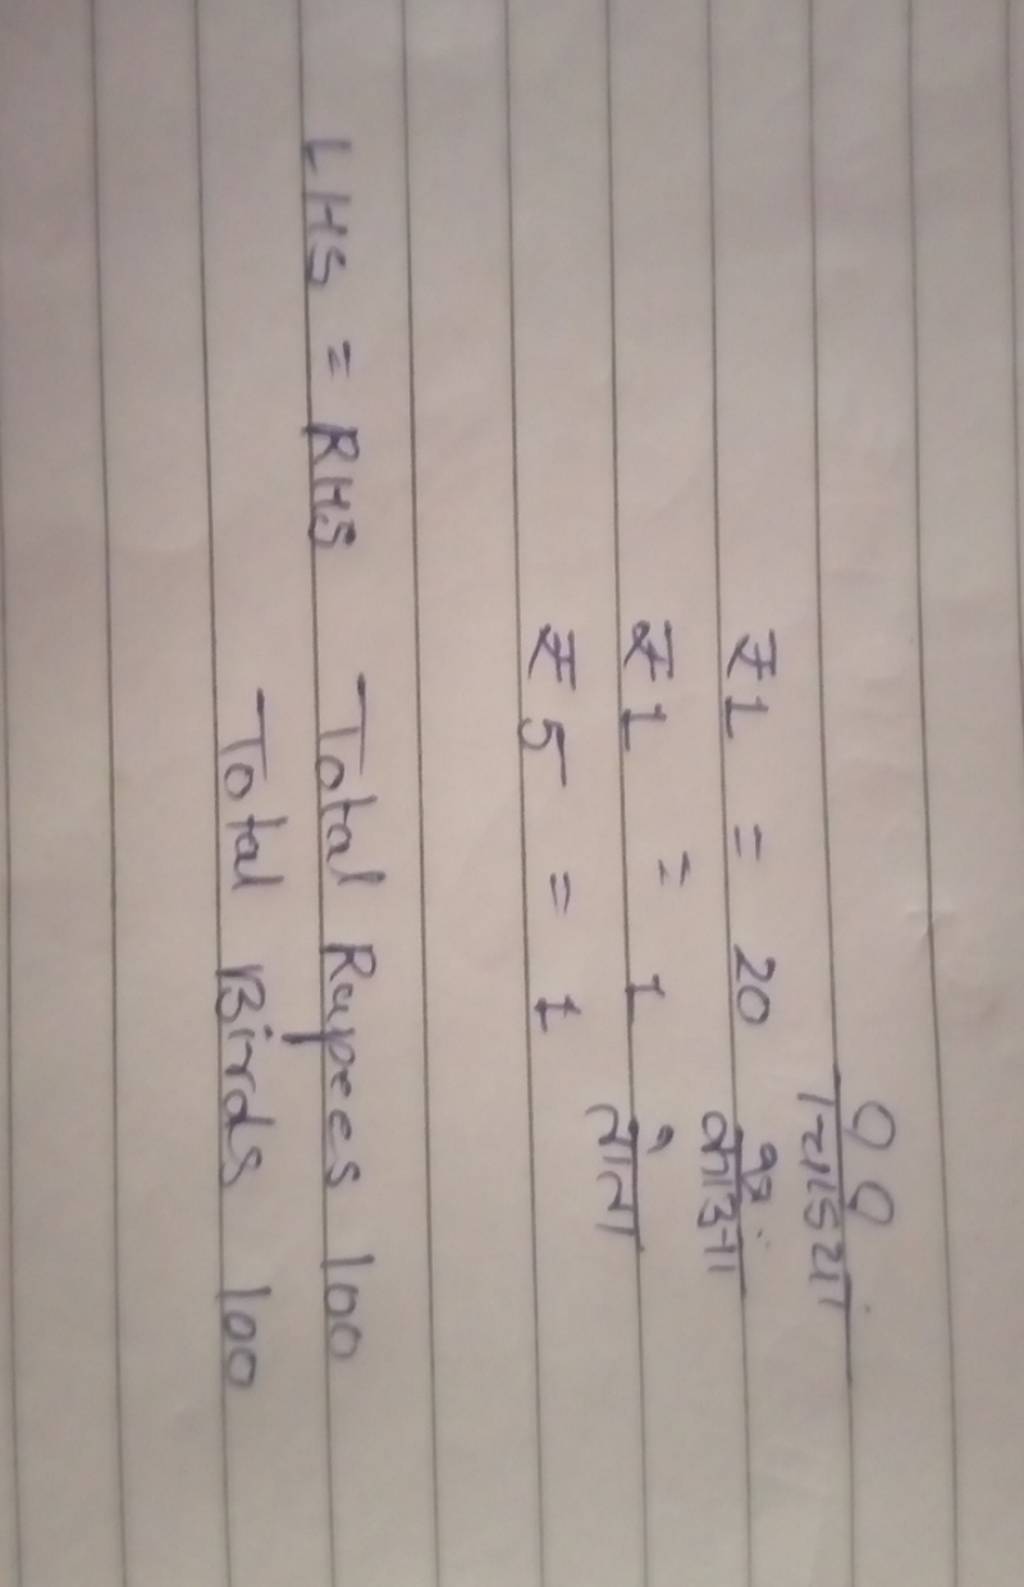 चिडियां
₹ 1 = 20
₹ 1 = 1 तोता
₹ 5 = 1
LHS = RHS Total Rupees 100
Total Birds 100